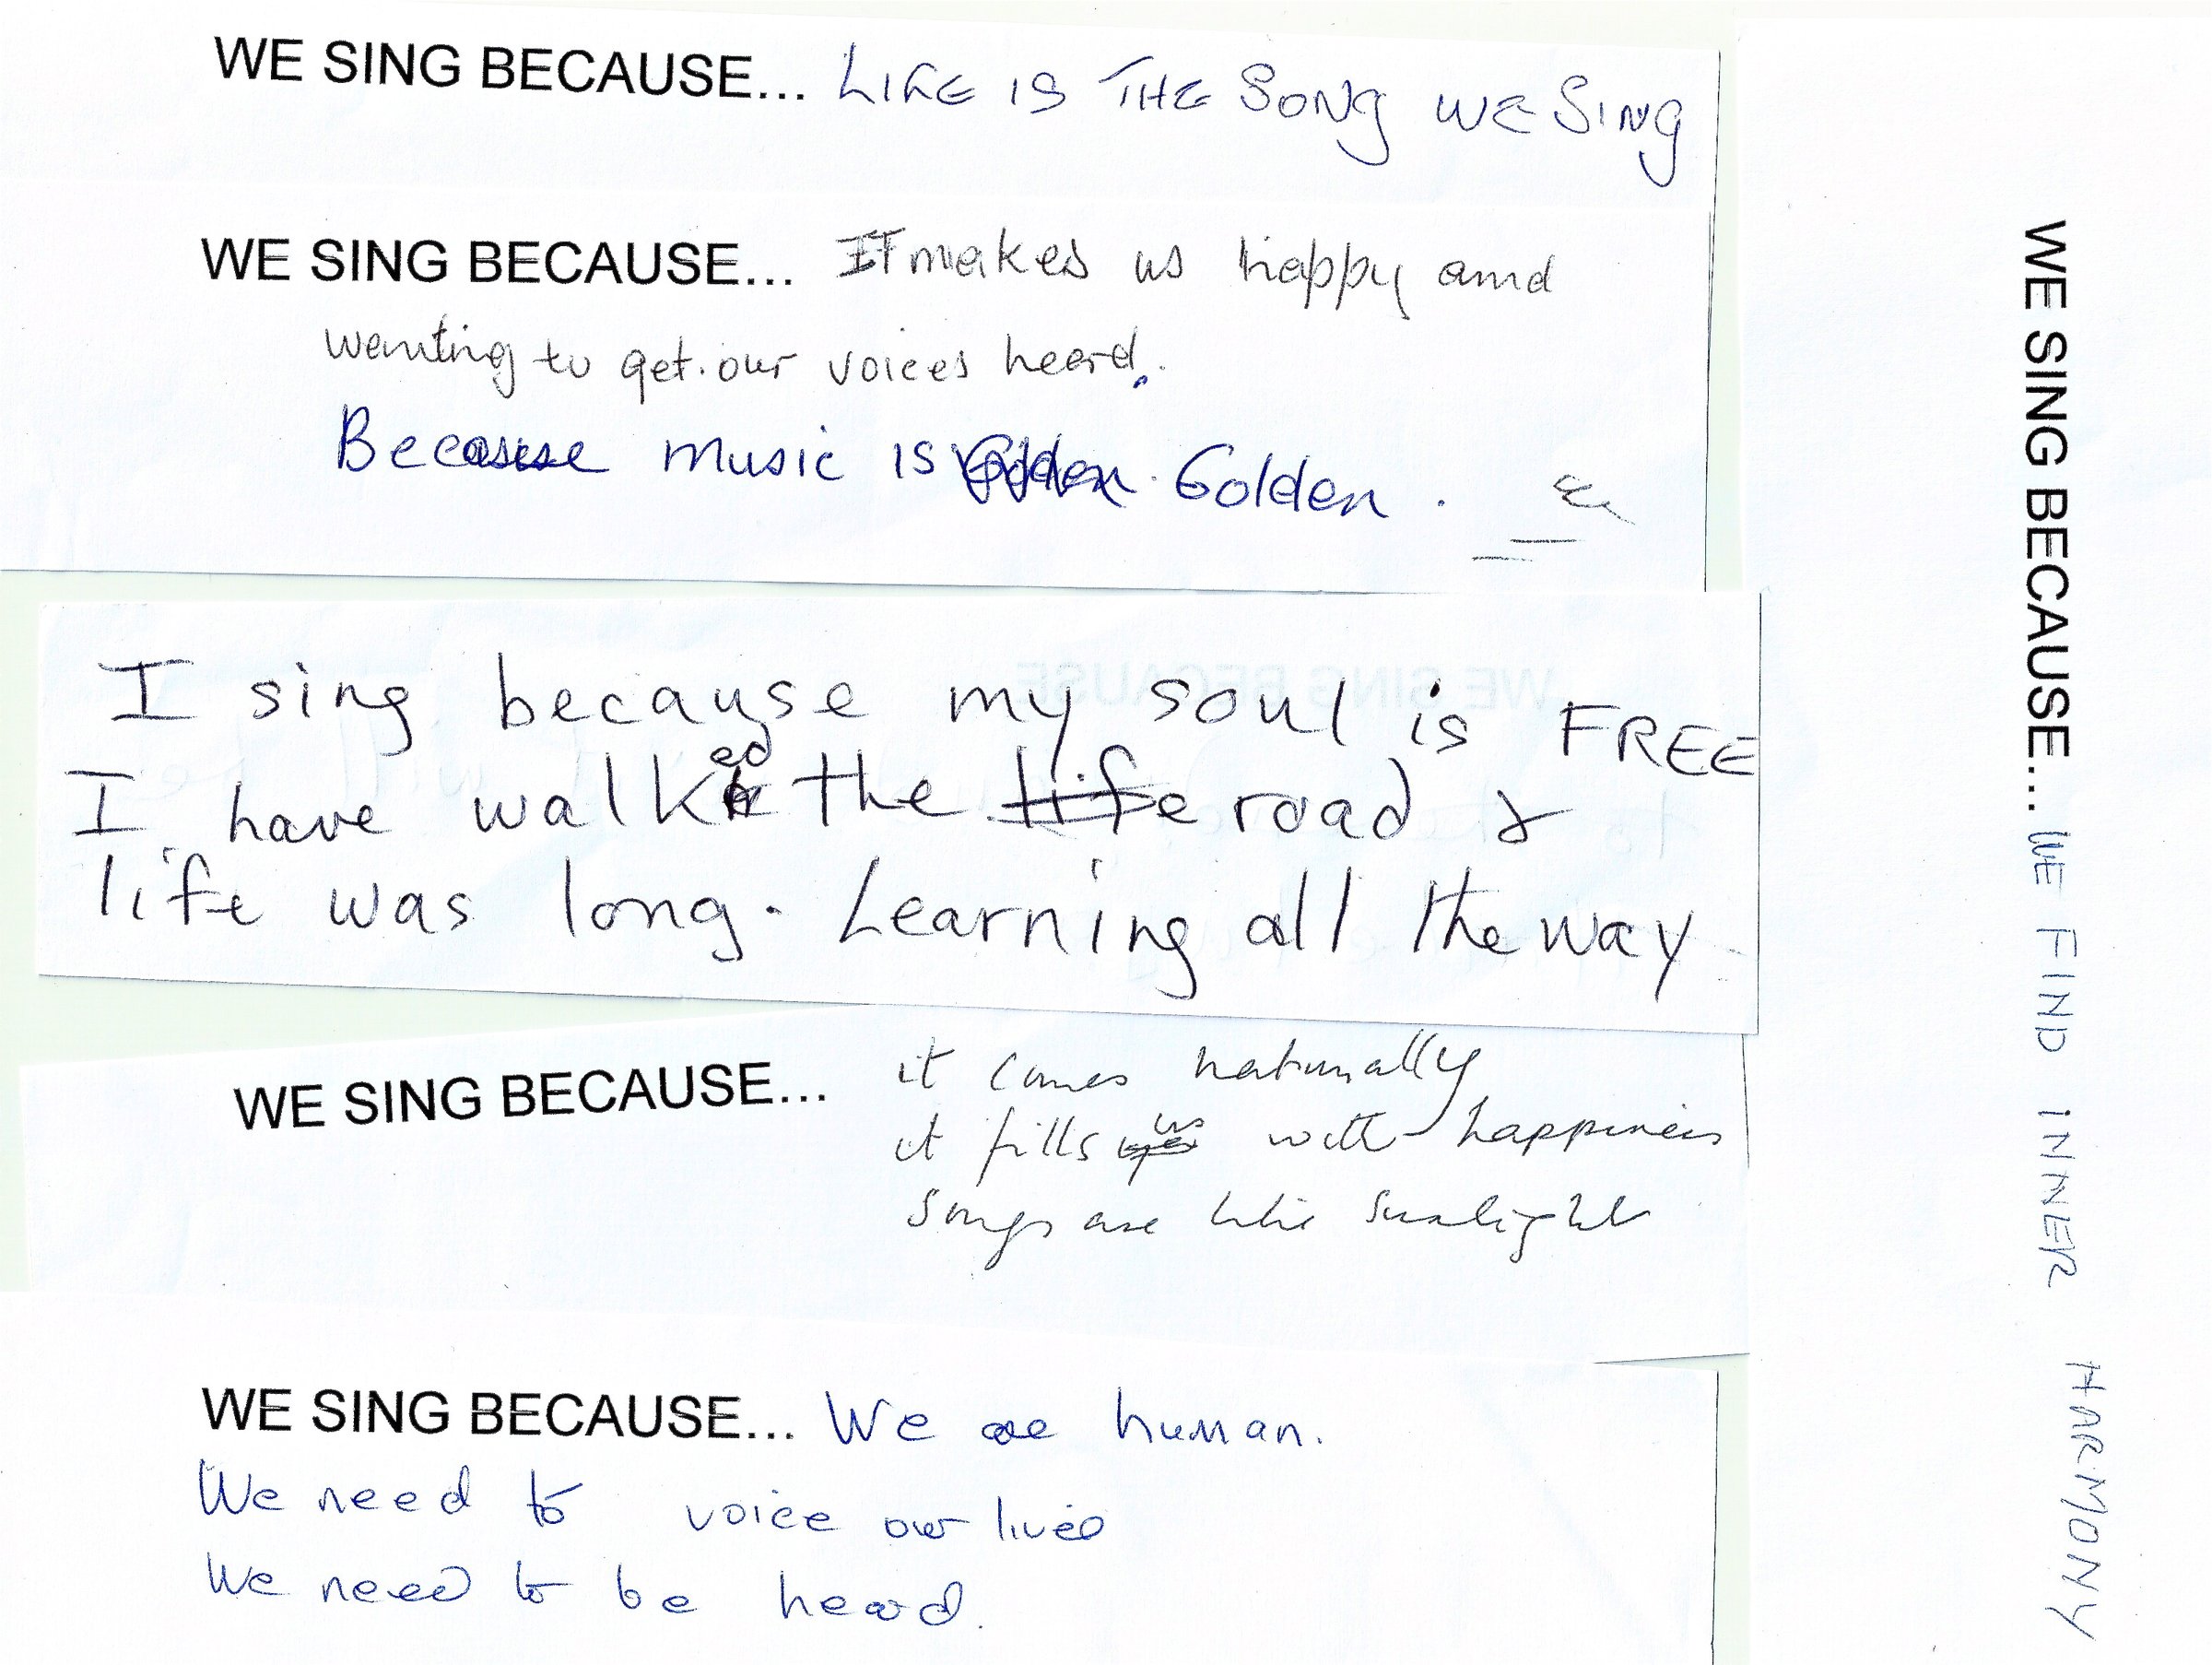 WE SING BECAUSE... LIFE IS THE SONG WE SING
WE SING BECAUSE... IT makes us happy and
wanting to get our voices heard.
Because music is Golden. Golden.
I sing because my soul is FREE
I have walked the life road &
life was long. Learning all the way
WE SING BECAUSE... it comes naturally
it fills us with happiness
Songs are like sunlight
WE SING BECAUSE... We are human.
We need to voice our lives
We need to be heard.
WE SING BECAUSE... WE FIND INNER HARMONY